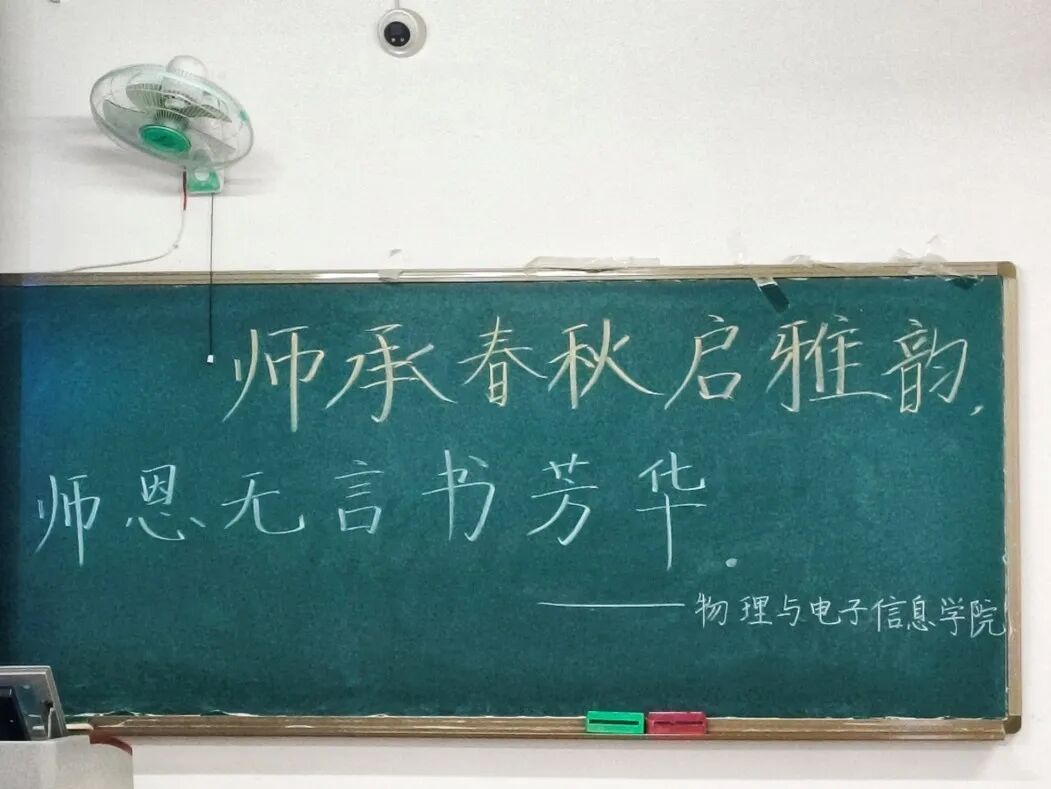 师承春秋启雅韵,
师恩无言书芳华.
——物理与电子信息学院